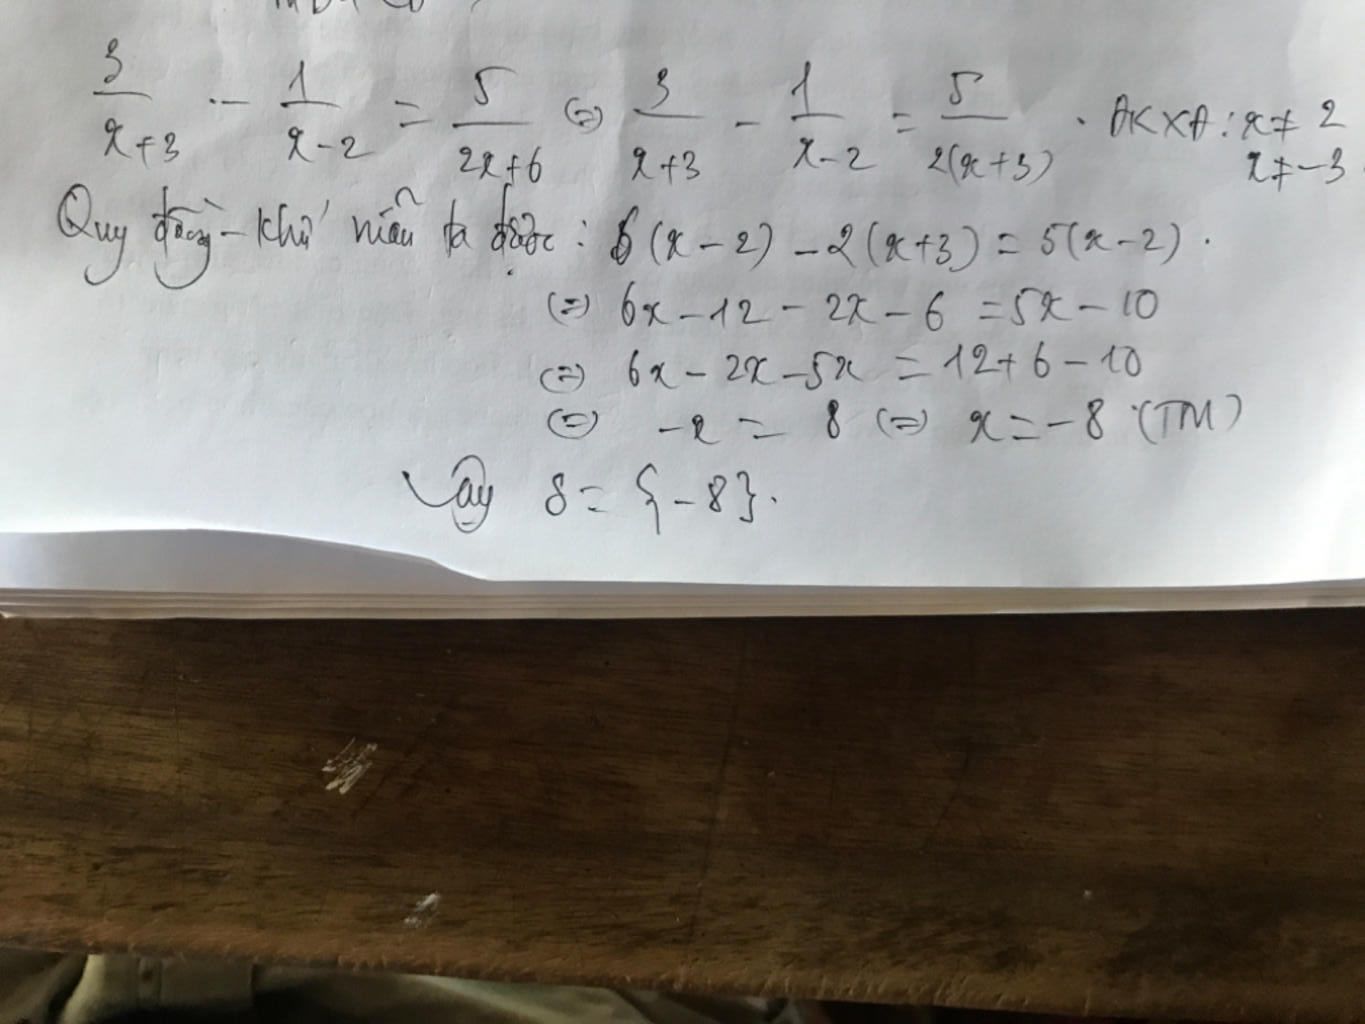 3/(x+3) - 1/(x-2) = 5/(2x+6) (=) 3/(x+3) - 1/(x-2) = 5/(2(x+3)) . ĐKXĐ: x ≠ 2
x ≠ -3
Quy đồng - khử mẫu ta được: 6(x-2) - 2(x+3) = 5(x-2).
(=) 6x - 12 - 2x - 6 = 5x - 10
(=) 6x - 2x - 5x = 12 + 6 - 10
(=) -x = 8 (=) x = -8 (TM)
Vậy S = {-8}.